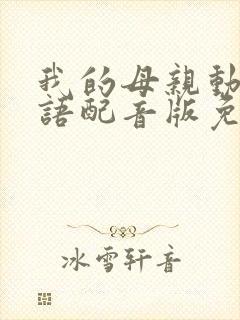 我的母親動
語配音版免
冰雪轩音